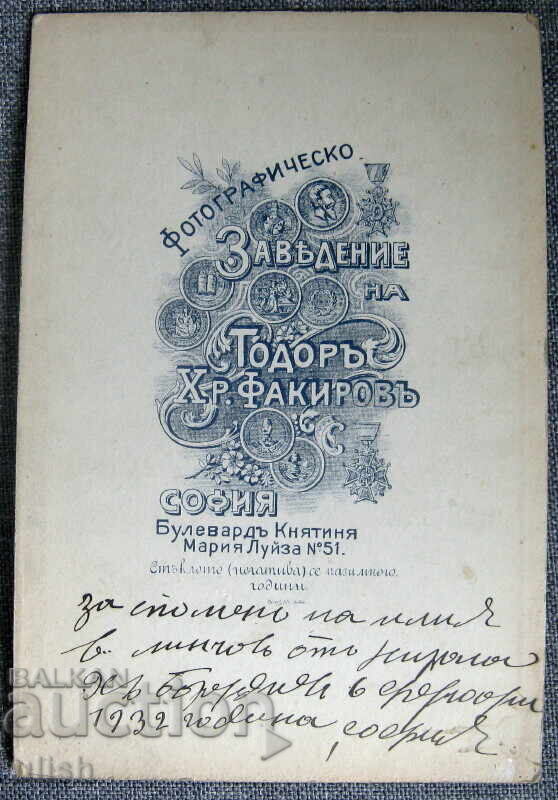 Фотографическо
Заведение
на
Тодоръ
Хр. Факировъ
София
Булевардъ Княтиня
Мария Луйза №51.
Стъклото (негатива) се пази много
години.
за споменъ на илия
в. линчовъ отъ
в февруари
1932 година, софия
BALKAN
auction
ulish